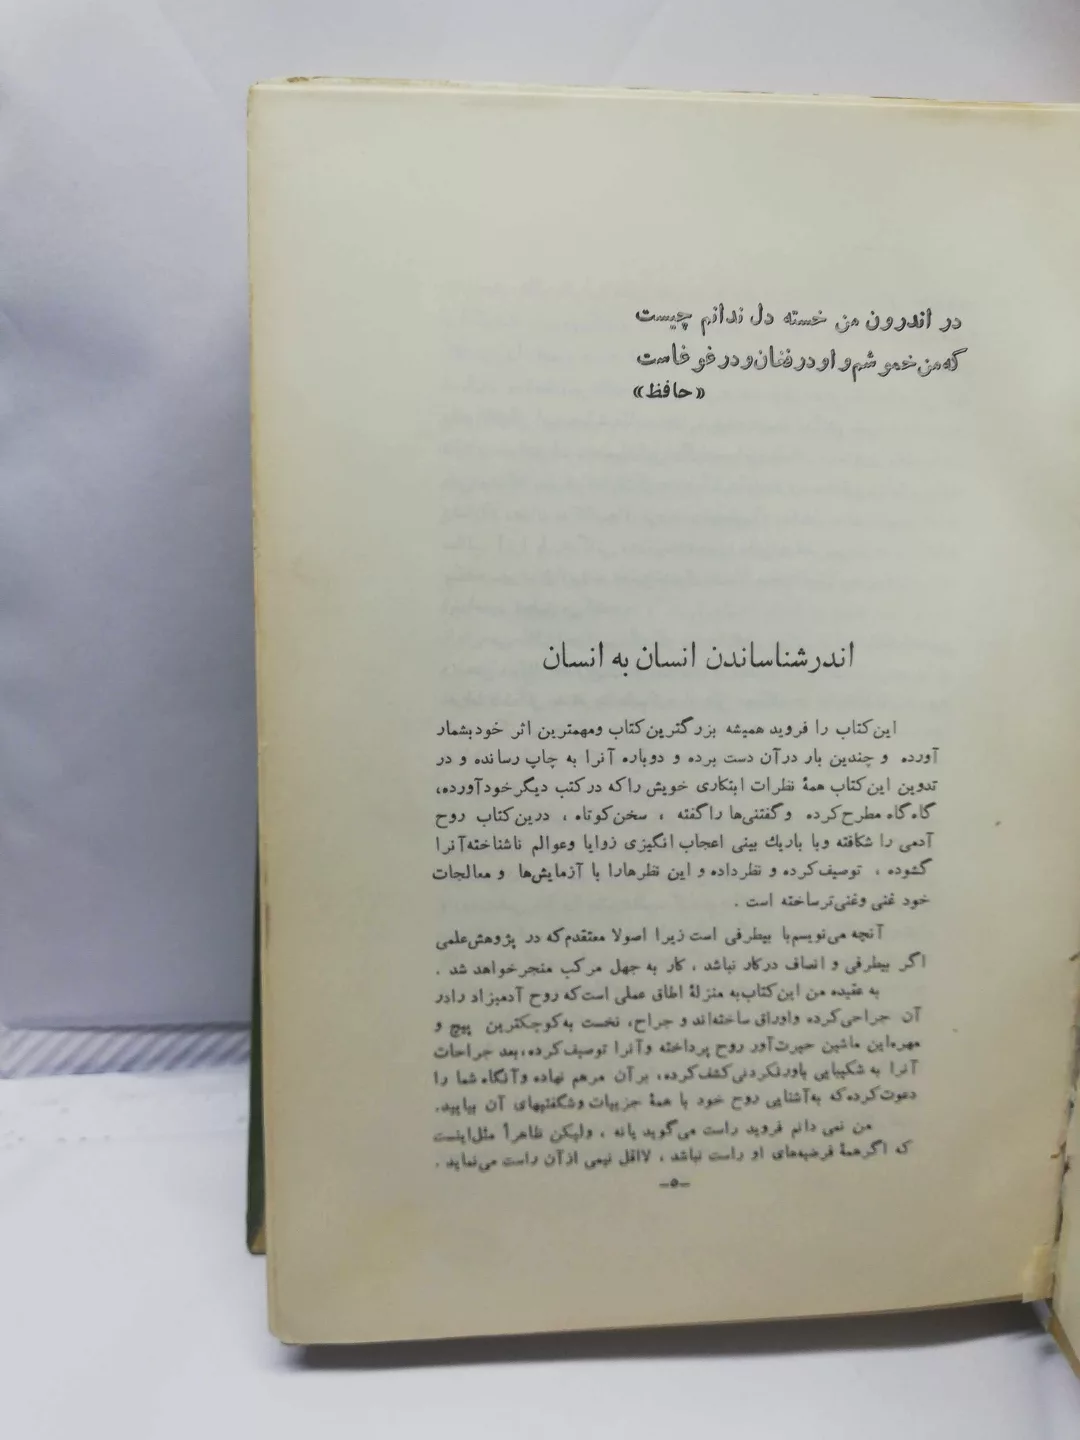 در اندرون من خسته دل ندانم چیست
که من خموشم و او در فغان و در غوغاست
«حافظ»
اندرشناساندن انسان به انسان
این کتاب را فروید همیشه بزرگترین کتاب ومهمترین اثر خودبشمار
آورده و چندین بار درآن دست برده و دوباره آنرا به چاپ رسانده و در
تدوین این کتاب همهٔ نظرات ابتکاری خویش را که در کتب دیگر خود آورده،
گاه گاه مطرح کرده و گفتنی‌ها را گفته ، سخن کوتاه ، درین کتاب روح
آدمی را شکافته وبا باریك بینی اعجاب انگیزی زوایا وعوالم ناشناخته آنرا
گشوده ، توصیف کرده و نظر داده و این نظرهارا با آزمایش‌ها و معالجات
خود غنی وغنی‌تر ساخته است .
آنچه می‌نویسم با بیطرفی است زیرا اصولا معتقدم که در پژوهش علمی
اگر بیطرفی و انصاف درکار نباشد ، کار به جهل مرکب منجر خواهد شد .
به عقیده من این کتاب به منزلهٔ اطاق عملی است که روح آدمیزاد رادر
آن جراحی کرده واوراق ساخته‌اند و جراح، نخست به کوچکترین پیچ و
مهره این ماشین حیرت‌آور روح پرداخته وآنرا توصیف کرده، بعد جراحات
آنرا به شکیبایی باورنکردنی کشف کرده، برآن مرهم نهاده وآنگاه شما را
دعوت کرده که به آشنایی روح خود با همهٔ جزییات وشگفتیهای آن بیایید.
من نمی دانم فروید راست می‌گوید یانه ، ولیکن ظاهراً مثل اینست
که اگر همهٔ فرضیه‌های او راست نباشد ، لااقل نیمی از آن راست می‌نماید .
-۵-